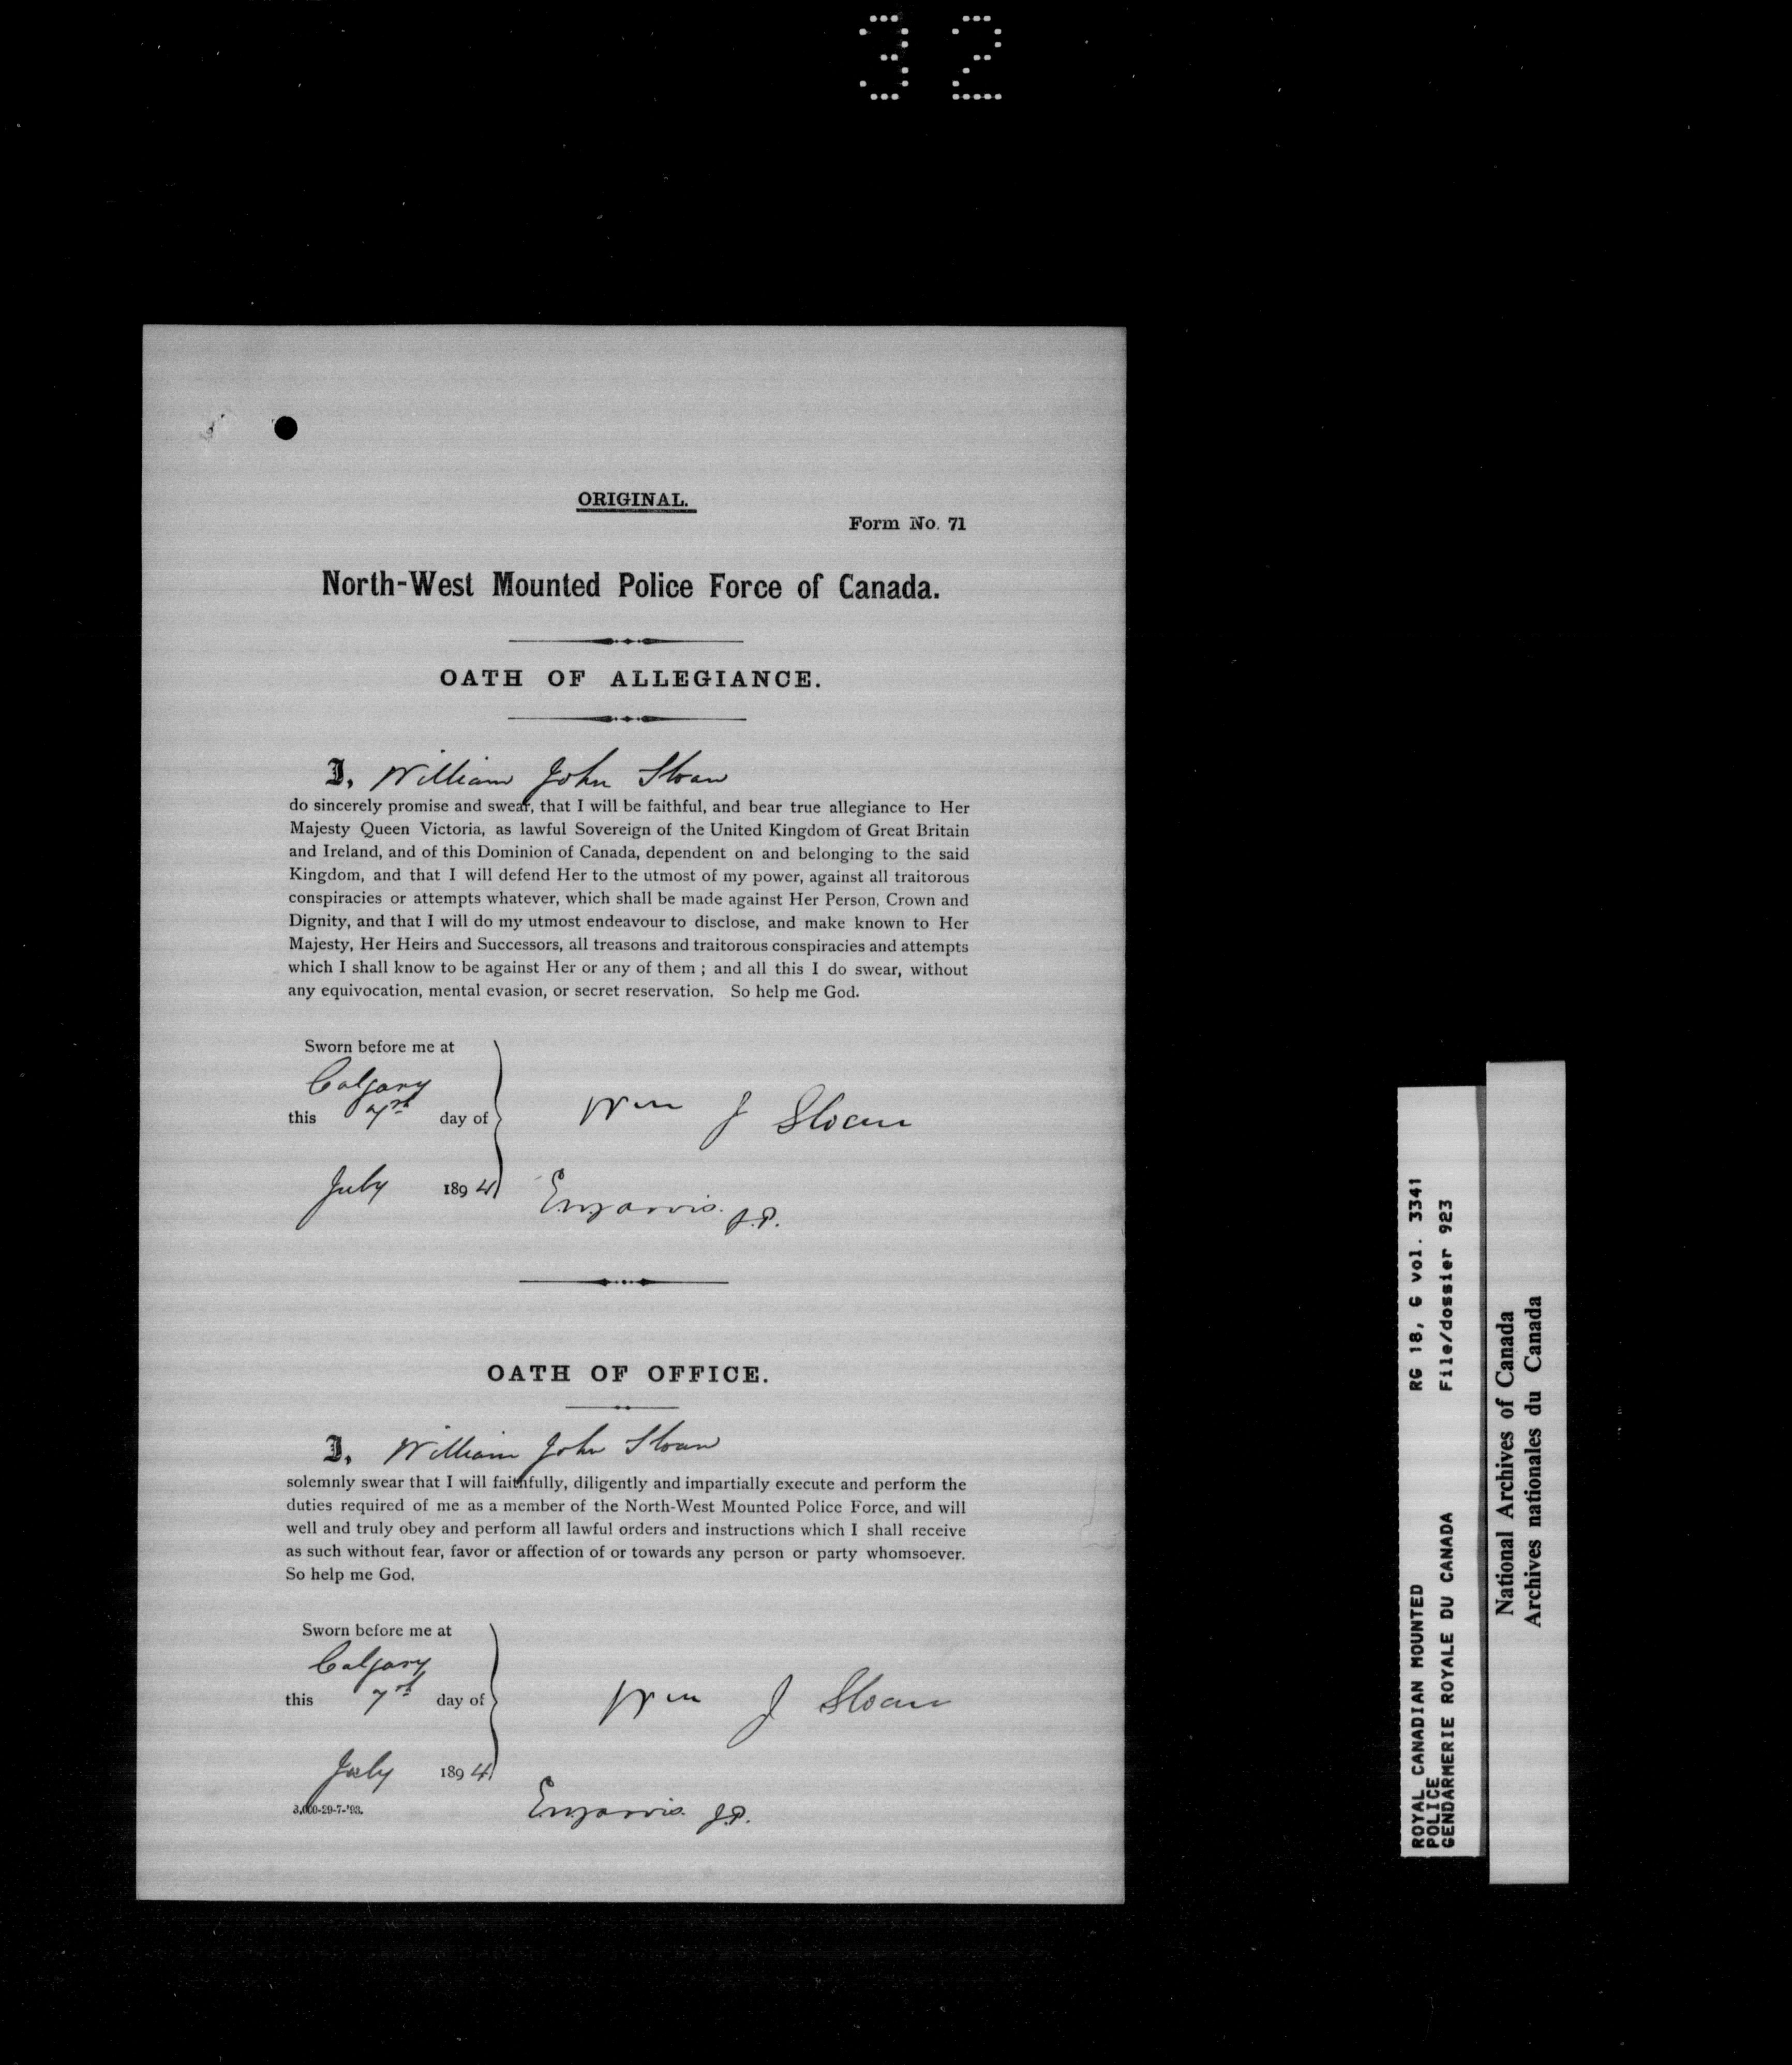 32
ORIGINAL.
Form No. 71
North-West Mounted Police Force of Canada.
OATH OF ALLEGIANCE.
I, William John Sloan
do sincerely promise and swear, that I will be faithful, and bear true allegiance to Her
Majesty Queen Victoria, as lawful Sovereign of the United Kingdom of Great Britain
and Ireland, and of this Dominion of Canada, dependent on and belonging to the said
Kingdom, and that I will defend Her to the utmost of my power, against all traitorous
conspiracies or attempts whatever, which shall be made against Her Person, Crown and
Dignity, and that I will do my utmost endeavour to disclose, and make known to Her
Majesty, Her Heirs and Successors, all treasons and traitorous conspiracies and attempts
which I shall know to be against Her or any of them ; and all this I do swear, without
any equivocation, mental evasion, or secret reservation. So help me God.
Sworn before me at
Calgary
this 7th day of
Wm J Sloan
July 1894
J.P.
OATH OF OFFICE.
I, William John Sloan
solemnly swear that I will faithfully, diligently and impartially execute and perform the
duties required of me as a member of the North-West Mounted Police Force, and will
well and truly obey and perform all lawful orders and instructions which I shall receive
as such without fear, favor or affection of or towards any person or party whomsoever.
So help me God.
Sworn before me at
Calgary
this 7th day of
Wm J Sloan
July 1894
3,000-29-7-'93.
J.P.
ROYAL CANADIAN MOUNTED RG 18, G vol. 3341
POLICE
GENDARMERIE ROYALE DU CANADA File/dossier 923
National Archives of Canada
Archives nationales du Canada